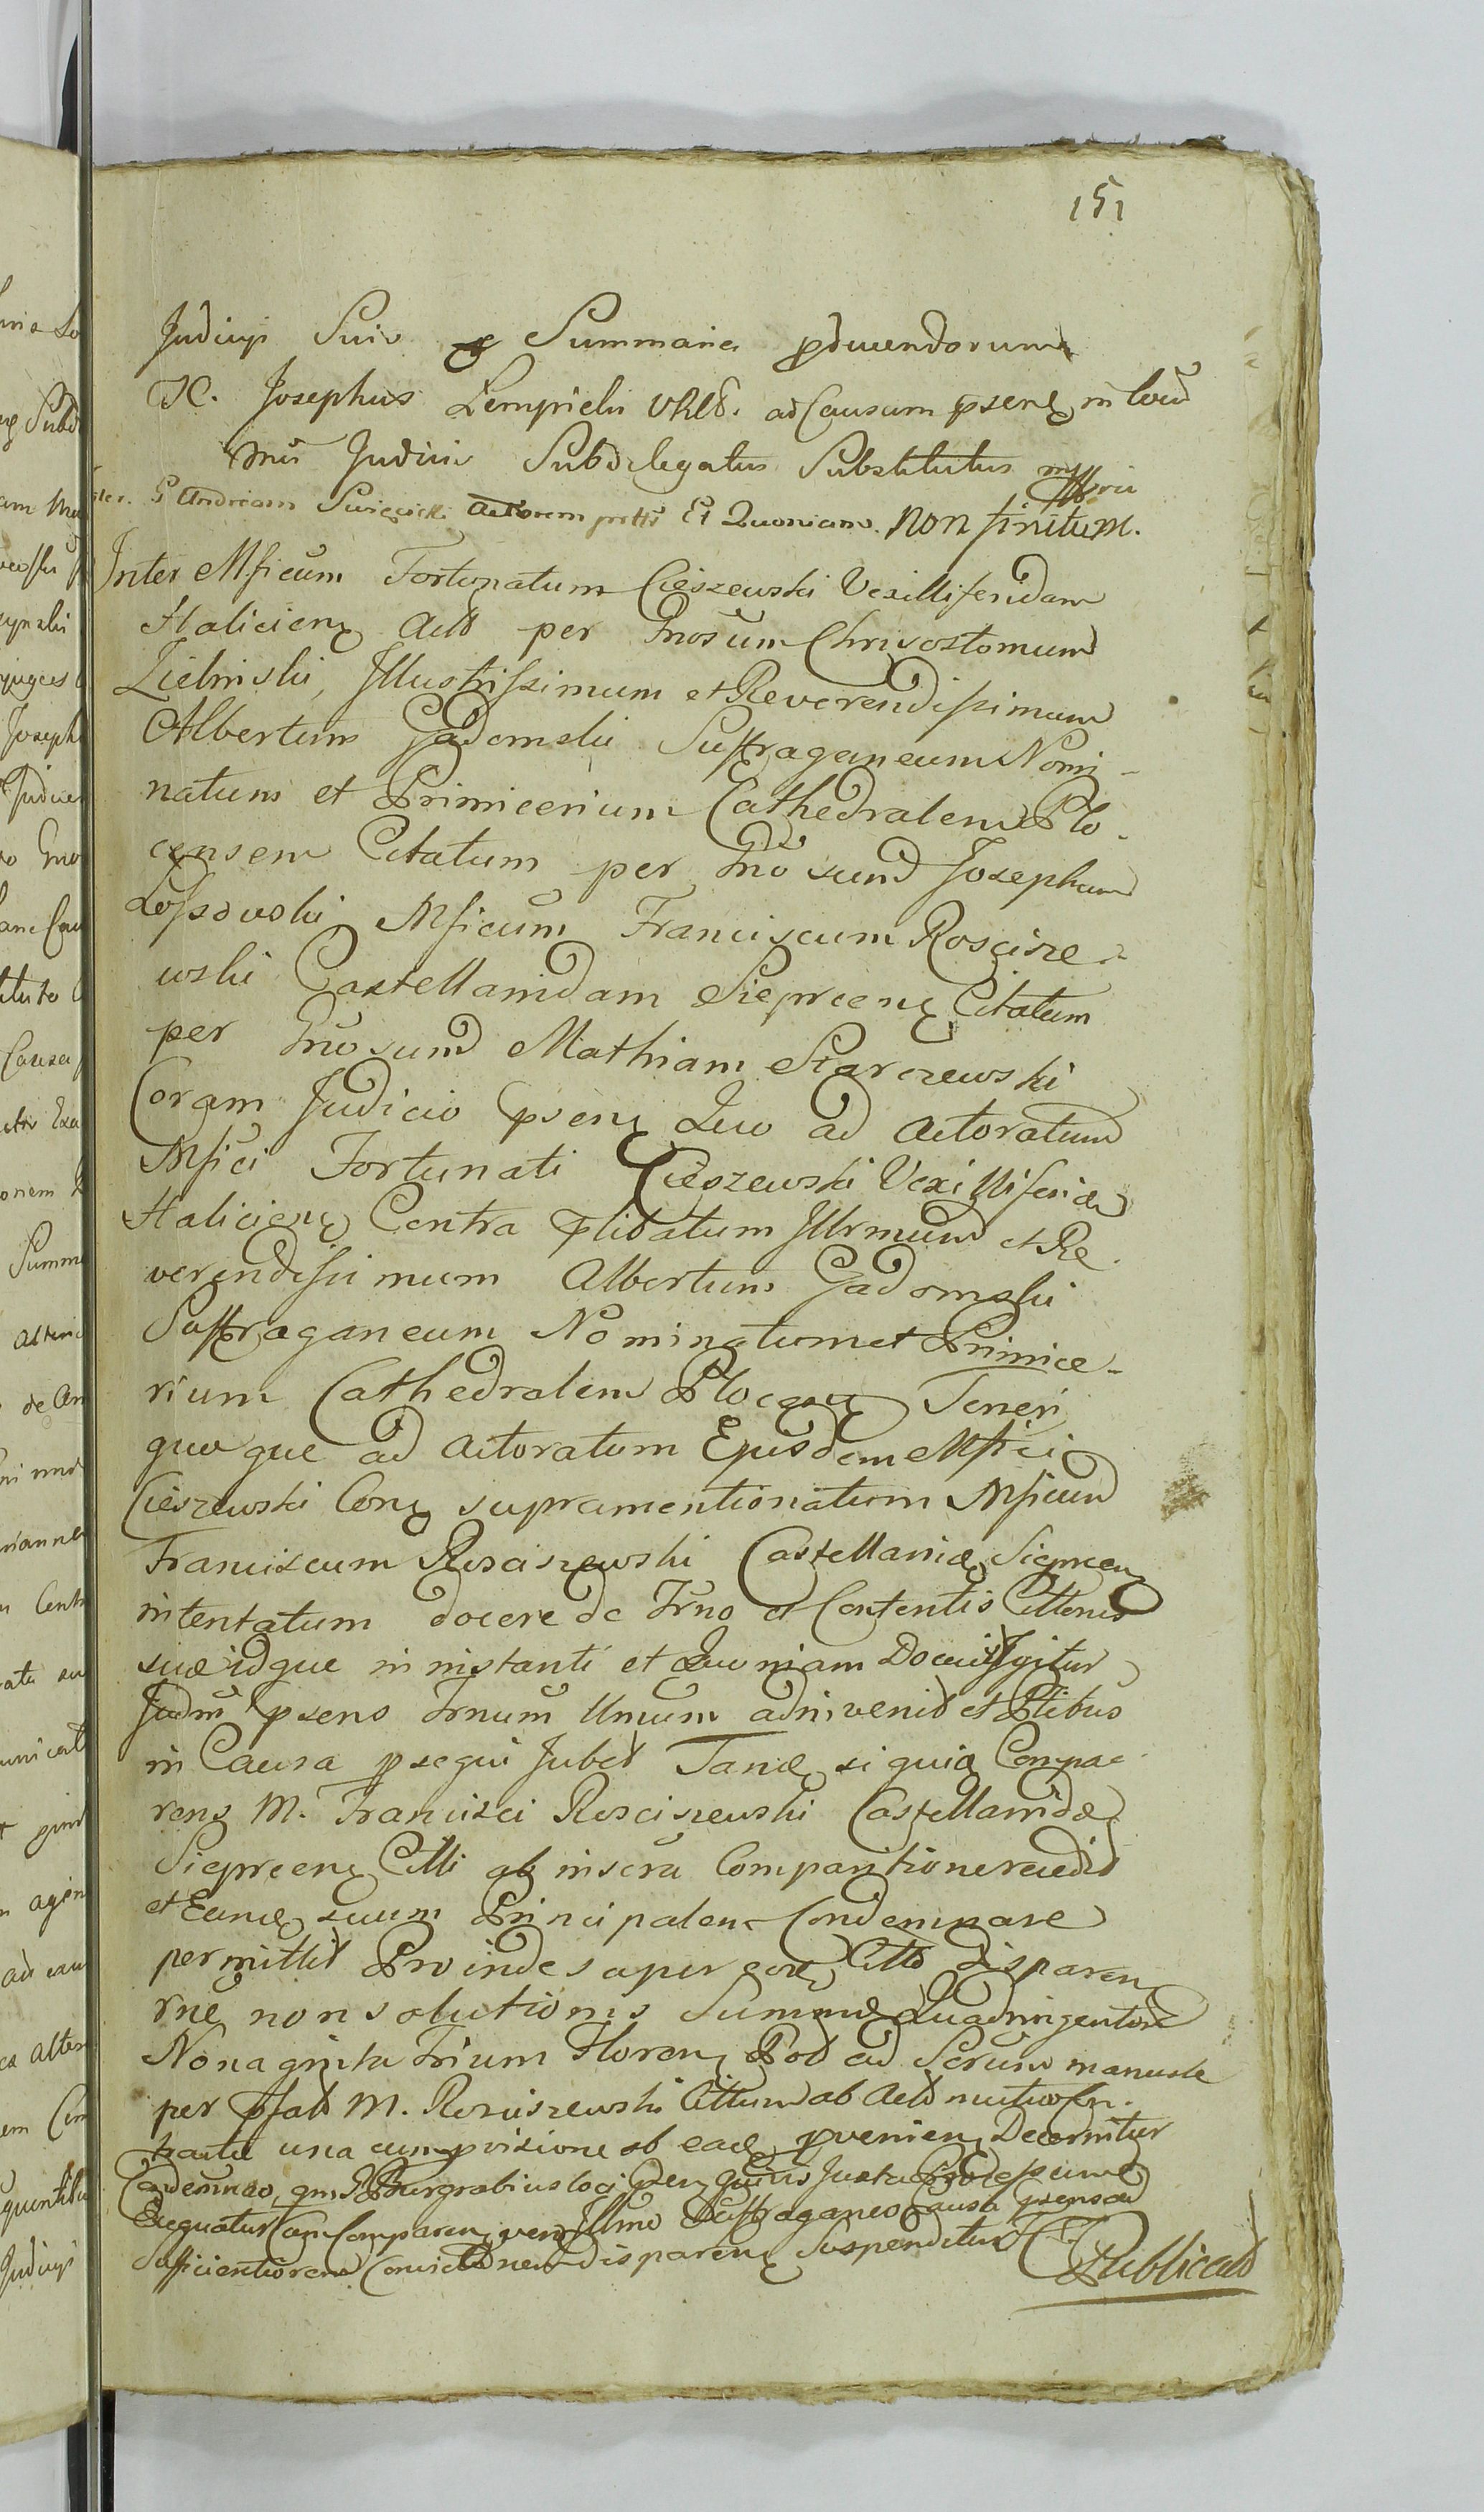 151
Judicyi Suis Summarie
Josephus Lempicki ad Causam psens in locũ
Judicii Subdelegatus Substitutus mppria
Andream Święcicki Actorem Et Quoniam. Non finitum.
Inter Mficum Fortunatum Cieszewski Vexilliferidam
Haliciens Actt per Gnosum Chrisostomum
Zielinski, Illustrissimum et Reverendissimum
Albertum Gadomski Suffraganeum Nomi-
natum et Primicerium Cathedralem Plo-
censem Citatum per Gnosum Josephum
Lossowski Mficum Francisum Roscisze-
wski Castellanidam Sieprcens Citatum
per Gnosum Mathiam Starczewski
Coram Judicio psens Quo ad Actoratum
Mfici Fortunati Cieszewski Vexilliferidæ
Haliciens Contra Illrmum et Re-
verendissimum Albertum Gadomski
Suffraganeum Nominatum et Primice-
rium Cathedralem Plocens Teneri
quoque ad Actoratum Ejusdem Mfici
Cieszewski Cons supramentionatum Mficum
Franciscum Rosciszewski Castellanidæ Sieprcens
intentatum docere de Trno et Contentis Cittonis
suæ idque in instanti et Quoniam Docuit Igitur
Judm psens Trnum Unum adinvenit et Ptibus
in Causa psequi Jubet Tandẽ si quidẽ Compa-
rens M. Francisci Rosciszewski Castellanidæ
Sieprcens Citti ab inscra Comparitione recedit
et Eundẽ suum Principalem Condemnare
permittit Proinde super eodẽ Citto disparen
rne non solutionis Summæ Quadringentor
Nonaginta Trium Floren Pol ad Scrum manuale
per pfatt M. Rosciszewski Cittum ab Actt mutuo Con-
tractæ una cum pvisione ab eadẽ pvenien Decernitur
Condemnao, qm Burgrabius loci psens Juxta Processum
Exequatur Cum Comparen vero Illmo Suffraganeo Causa psens ad
Sufficientiorem Convictionem disparens Suspenditur
Publicatt